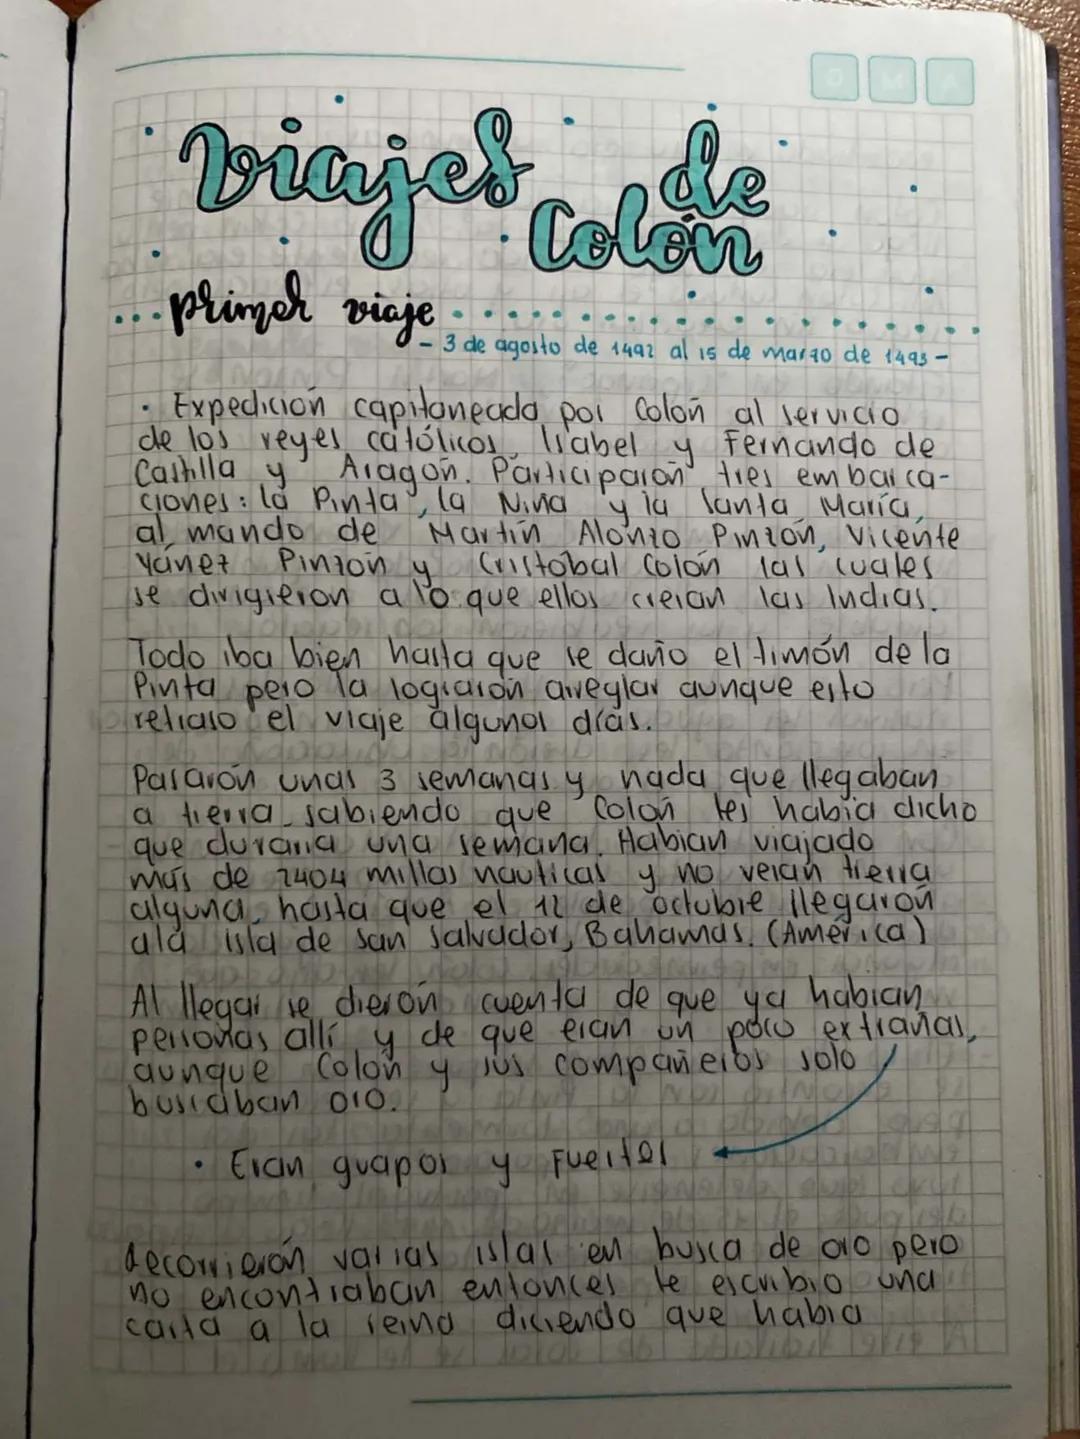 Viajes de
Colón
primer viaje
- 3 de agosto de 1492 al 15 de marzo de 1493 -
· Expedición capitaneada por Colón al servicio
de los reyes católicos, Isabel y Fernando de
Castilla y Aragón. Participarón tres embarca-
ciones: la Pinta, la Nina y la Santa María,
al mando de Martín Alonzo Pinzón, Vicente
Yánez Pinzón y Cristobal Colón las cuales
se dirigieron a lo que ellos creian las Indias.
Todo iba bien hasta que se daño el timón de la
Pinta pero la lograrón arreglar aunque esto
retraso el viaje algunos días.
Pasarón unas 3 semanas y nada que llegaban
a tierra sabiendo que Colón les había dicho
que duraria una semana. Habian viajado
más de 2404 millas nauticas y no veian tierra
alguna, hasta que el 12 de octubre llegarón
ala isla de San Salvador, Bahamas. (América)
Al llegar se dierón cuenta de que ya habian
personas allí y de que eran un poco extrañas,
aunque Colón y sus compañeros solo
buscaban oro.
· Eran guapos y fuertes
Recorrierón varias islas en busca de oro pero
no encontraban entonces le escribio una
carta a la reina diciendo que habia